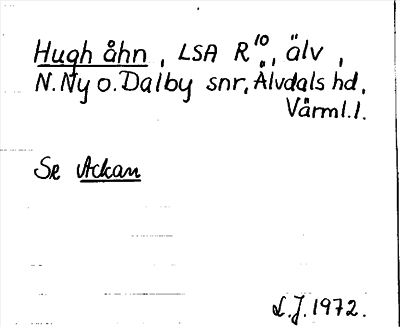 Hugh åhn, LSA R¹⁰, älv,
N. Ny o. Dalby snr, Älvdals hd,
Värml. l.
Se Ackan
L.J. 1972.